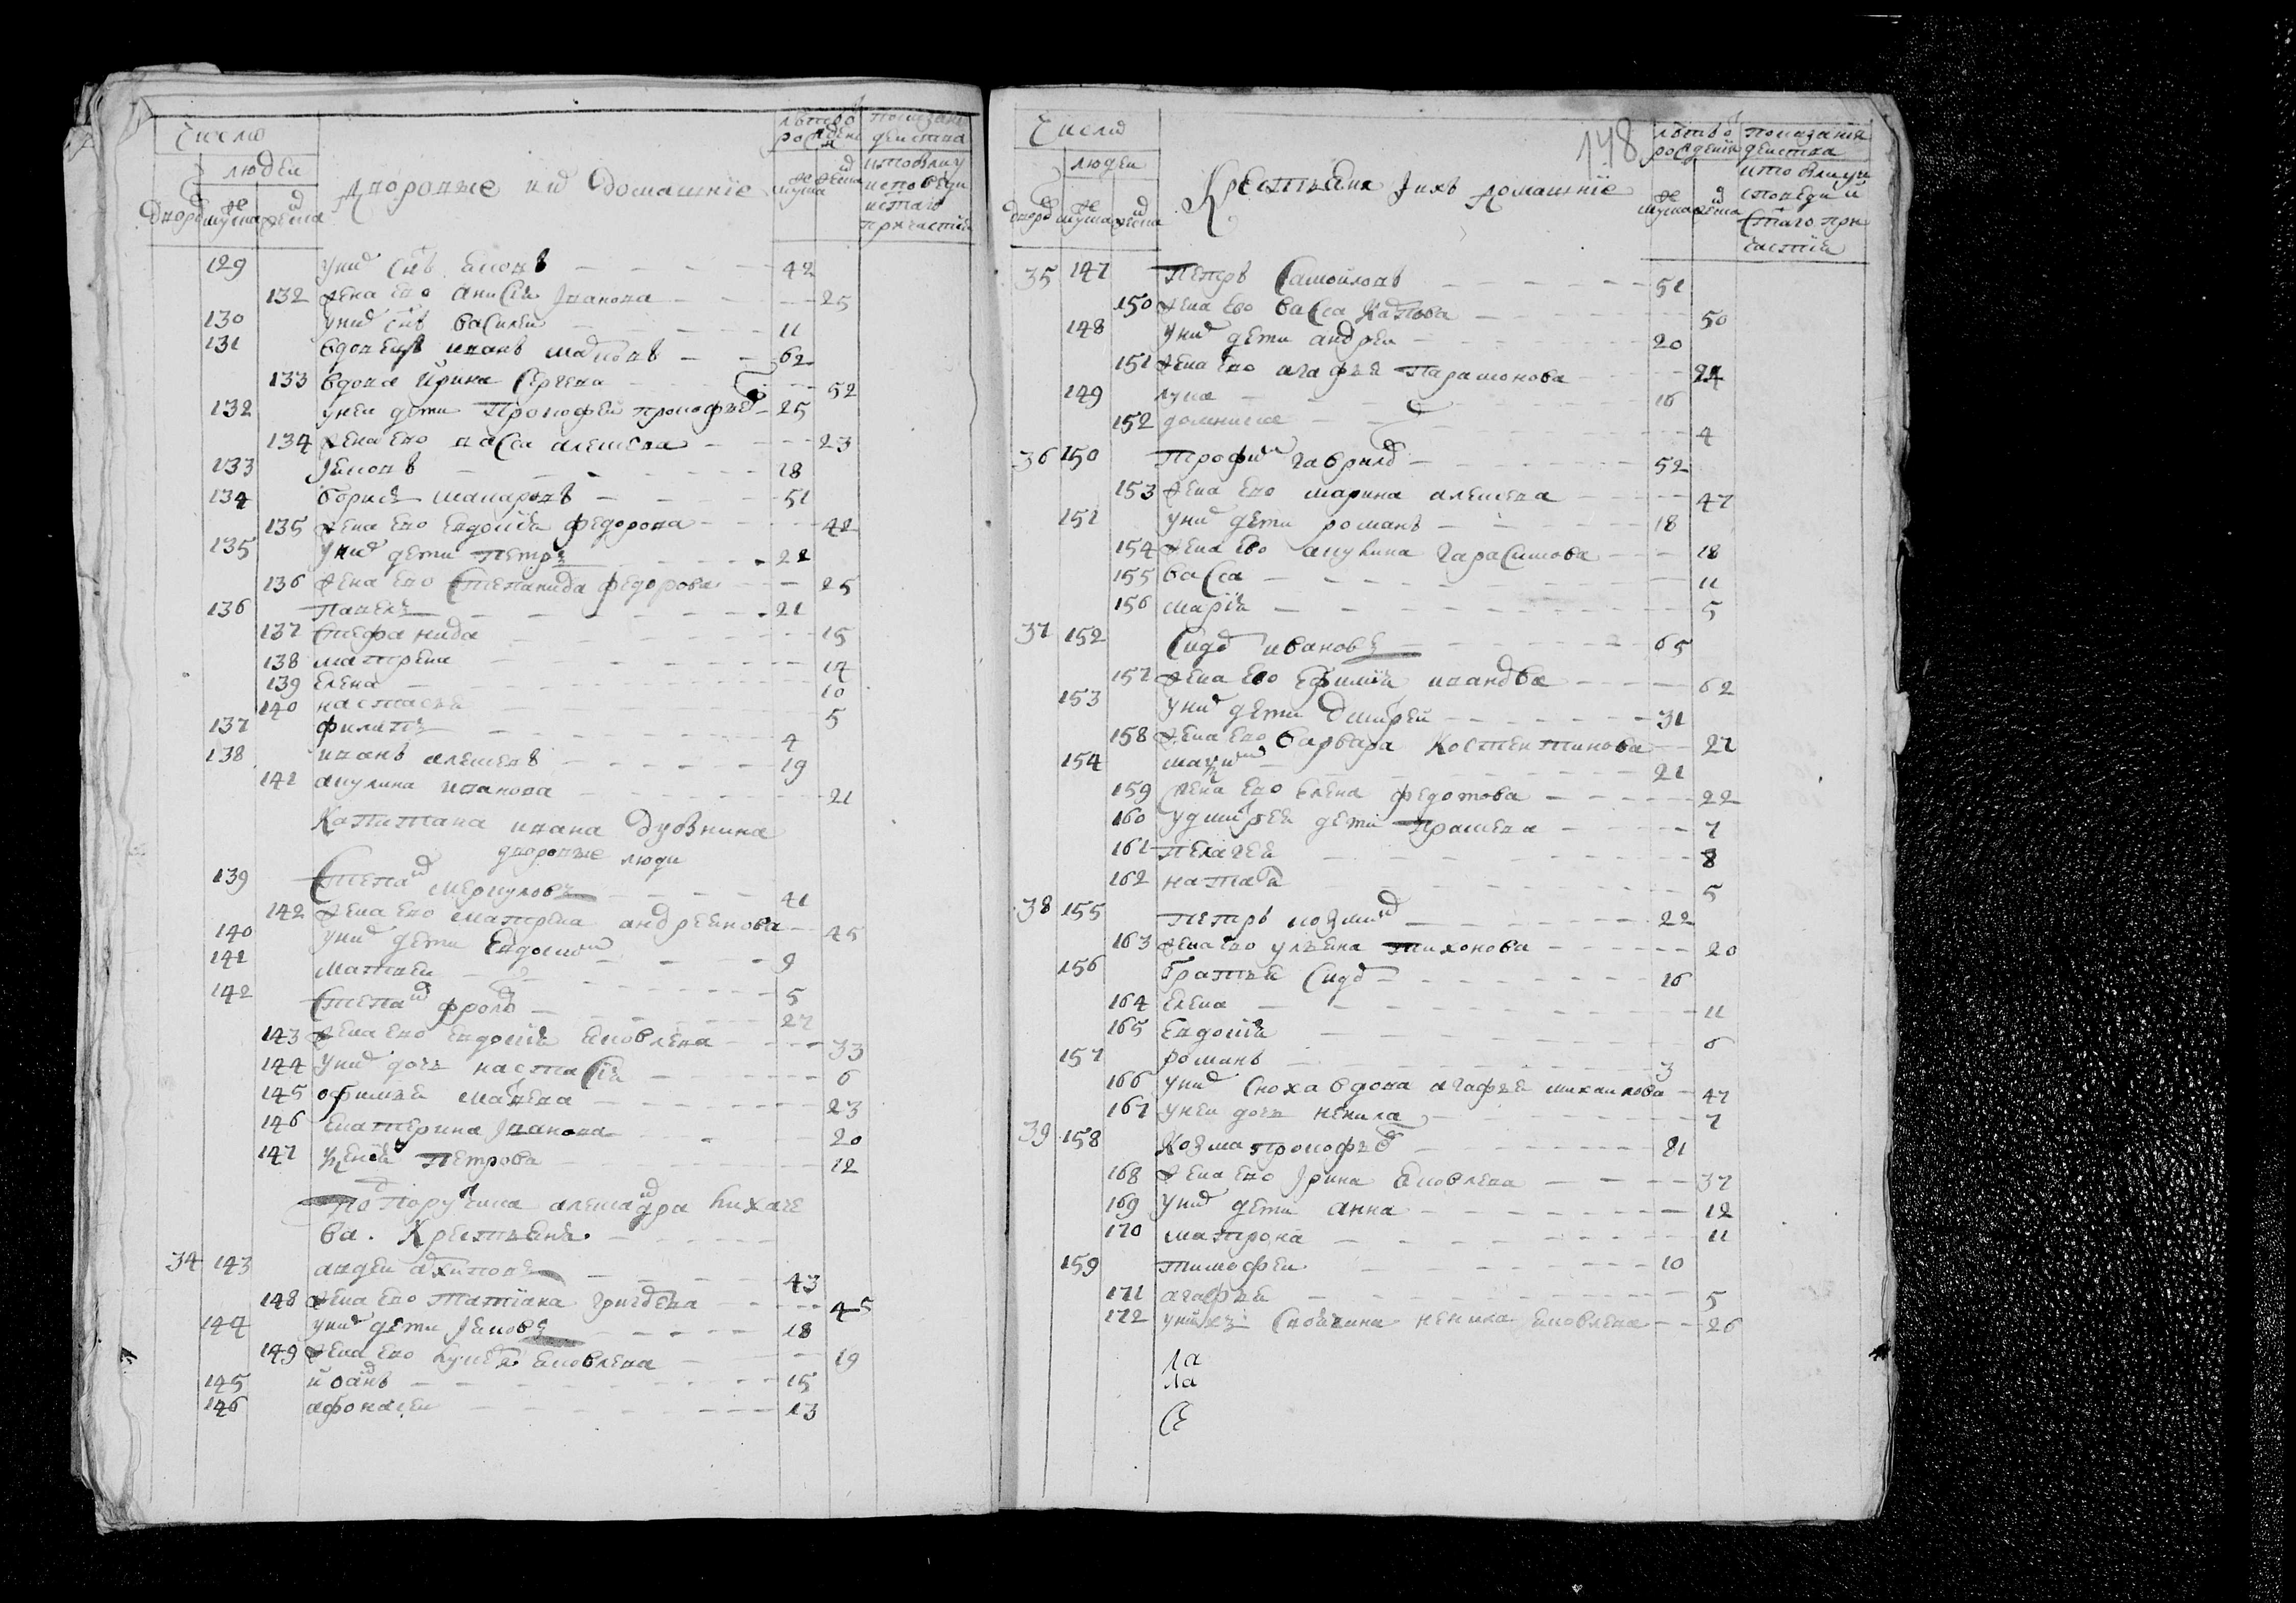 Число
людей
дворов мужеска женска
Дворовые их домашние
лета от рождения
мужеска женска
показание действа кто был у исповеди и святаго причастия
129 у них сынъ Яковъ 42
132 жена ево Анисия Iванова 25
130 у них сынъ Василеи 11
131 вдовецъ иванъ 62
133 вдова Ирина Сергеева 52
132 у неи дети Прокофеи прокофьев 25
134 жена ево васса алексеева 23
133 Iяковъ 18
134 борисъ макаровъ 51
135 жена ево Евдокия федорова 42
135 у них дети Петръ 22
136 жена ево Степанида федорова 25
136 Павелъ 21
137 Стефанида 15
138 матрена 14
139 Елена 10
140 настасья 5
137 филипъ 4
138 иванъ алексеевъ 19
141 акулина иванова 21
Капитана ивана Дубнина
дворовые люди
139 Степан меркуловъ 41
142 жена ево матрена андреянова 45
140 у них дети Евдоким 9
141 Матвеи 5
142 Степан фролов 27
143 жена ево Евдокия яковлева 33
144 у них дочь настасия 6
145 офимья 23
146 Екатерина Iванова 20
147 Ксения Петрова 12
Подпоручика александра лихаче
ва. Крестьяне.
34 143 авдеи архиповъ 43
148 жена ево Татиана григорева 45
144 у них дети Iяковъ 18
149 жена ево лукерья яковлева 19
145 иванъ 15
146 афонасеи 13
148
Число
людей
дворов мужеска женска
Крестьяня I ихъ домашние
лета от рождения
мужеска женска
показания действа кто был у исповеди и святаго причастия
35 147 Петръ Самойловъ 51
150 жена ево васса Карпова 50
148 у них дети андреи 20
151 жена ево агафья Парамонова 24
149 лука 16
152 домникея 4
36 150 Трофим гаврилов 52
153 жена ево марина алексеева 47
151 у них дети романъ 18
154 жена ево акулина гарасимова 18
155 васса 11
156 мария 5
37 152 Сидор ивановъ 65
157 жена ево Ефимия иванова 62
153 у них дети Дмитреи 31
158 жена ево варвара Костентинова 27
154 максим 21
159 жена ево елена федотова 22
160 у дмитрея дети Прасковя 7
161 Пелагея 8
162 наталя 5
38 155 Петръ козмин 22
163 жена ево ульяна тихонова 20
156 братья Сидор 16
164 Елена 11
165 Евдокия 6
157 романъ 3
166 у них сноха вдова агафья михаилова 47
167 у неи дочь ненила 7
39 158 Козма прокофьев 81
168 жена ево Iрина яковлева 37
169 у них дети анна 12
170 матрона 11
159 тимофеи 10
171 агафья 5
172 у них свойчина ненила яковлева 26